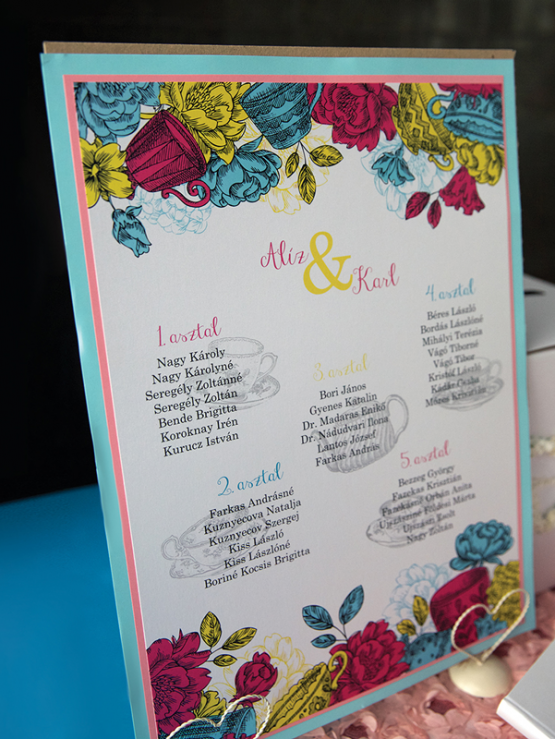 Alíz
&
Karl
1. asztal
Nagy Károly
Nagy Károlyné
Seregély Zoltánné
Seregély Zoltán
Bende Brigitta
Koroknay Irén
Kurucz István
2. asztal
Farkas Andrásné
Kuznyecova Natalja
Kuznyecov Szergej
Kiss László
Kiss Lászlóné
Boriné Kocsis Brigitta
3. asztal
Bori János
Gyenes Katalin
Dr. Madaras Enikő
Dr. Nádudvari Ilona
Lantos József
Farkas András
4. asztal
Béres László
Bordás Lászlóné
Mihályi Terézia
Vágó Tiborné
Vágó Tibor
László
Kádár
5. asztal
Bezzeg György
Fazekas Krisztián
Orbán Anita
Földesi Márta
Ujszászi Zsolt
Nagy Zoltán